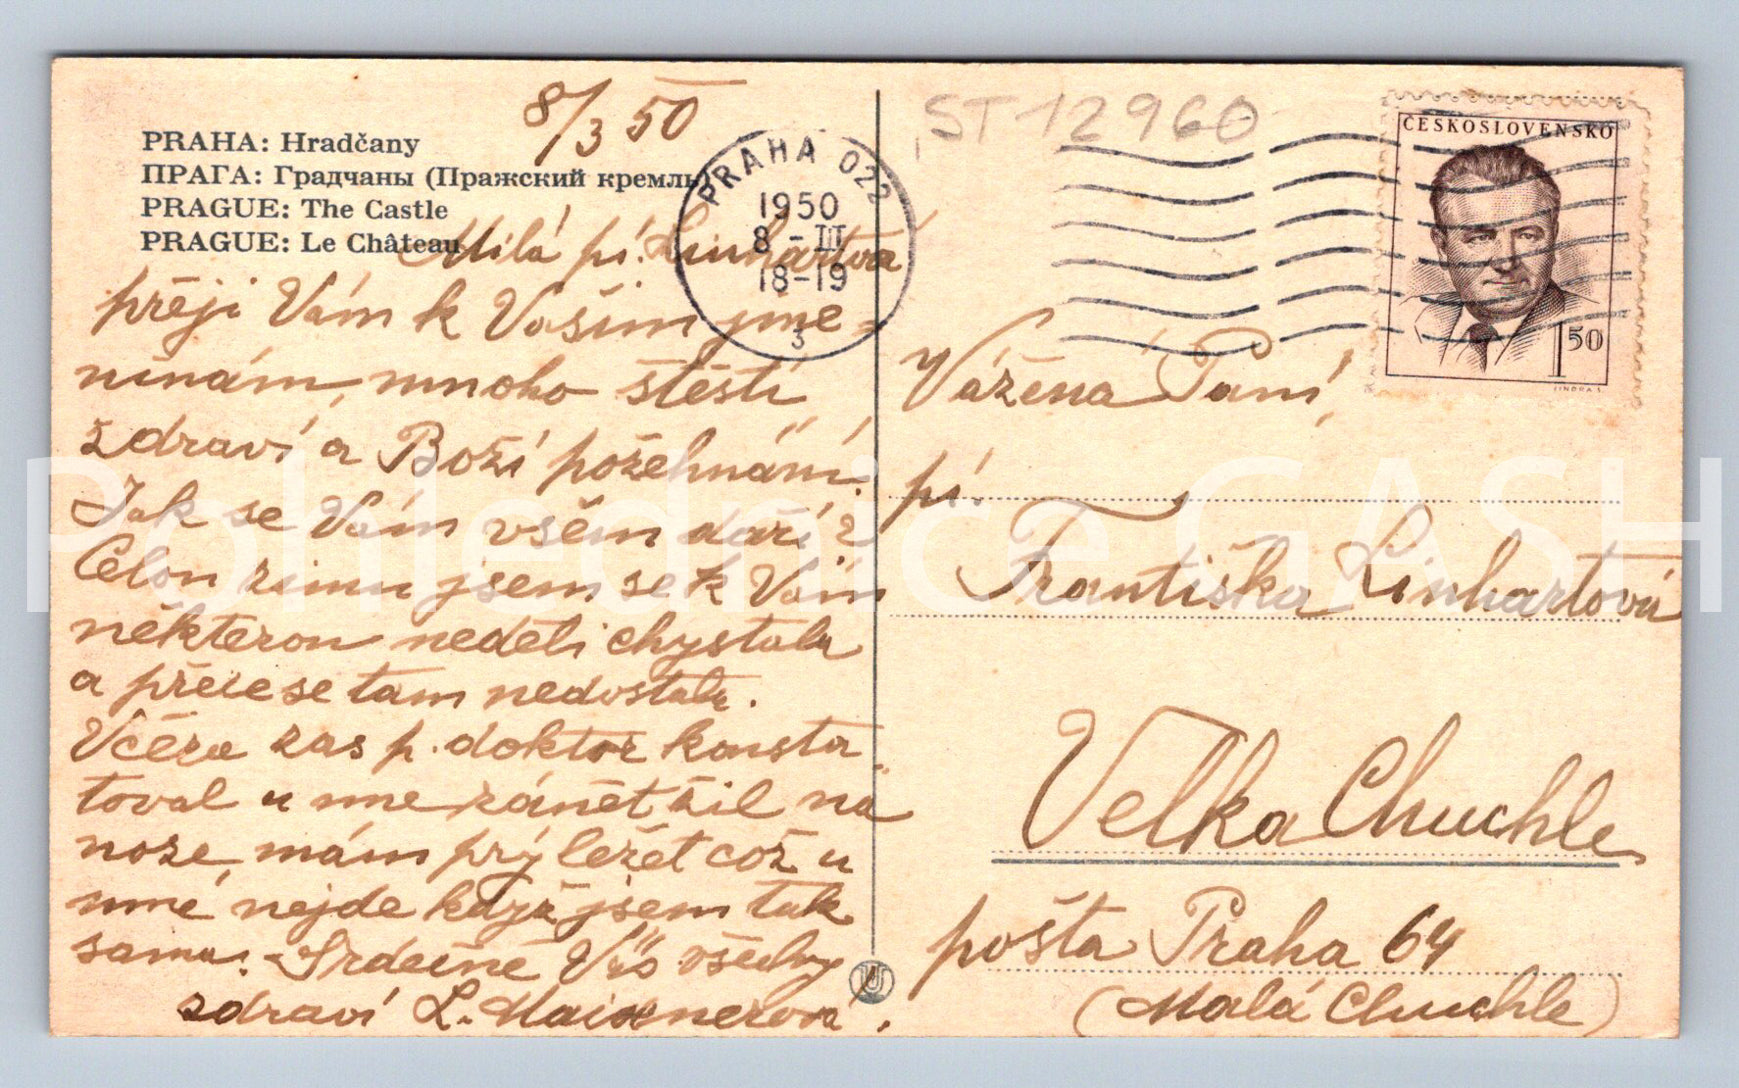 8/3 50
PRAHA: Hradčany
ПРАГА: Градчаны (Пражский кремль)
PRAGUE: The Castle
PRAGUE: Le Château
PRAHA 022
1950
8 - III
18-19
3
ST 12960
ČESKOSLOVENSKO
1 50
Milá pí. Linhartová
přeji Vám k Vašim jme-
ninám, mnoho štěstí
zdraví a Boží požehnání.
Jak se Vám všem daří?
Celou zimu jsem se k Vám
některou neděli chystala
a přece se tam nedostala.
Včera zas p. doktor konsta-
toval u mne zánět žil na
noze, mám prý ležet což u
mně nejde když jsem tak
sama. - Srdečně Vás všechny
zdraví L. Maixnerová.
Vážená Paní,
pí.
Františka Linhartová
Velká Chuchle
pošta Praha 64
(Malá Chuchle)
Pohlednice GASH